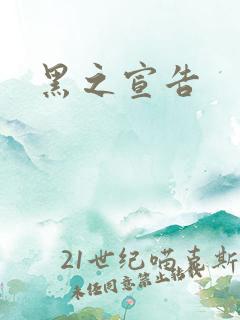 黑之宣告
21世纪喵克斯
未经同意禁止转载